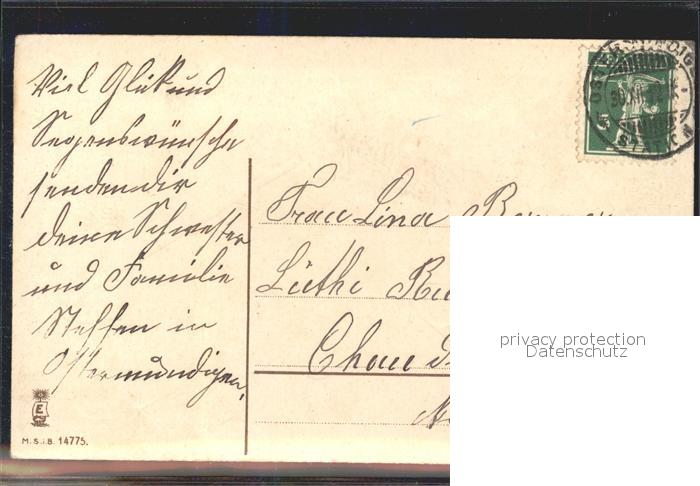 Viel Glük und
Segenswünsche
senden dir
deine Schwester
und Familie
Steffen in
Ostermundigen.
Frau Lina
Lüthi
Chau d
M.S.i.B. 14775.
E
5
privacy protection
Datenschutz